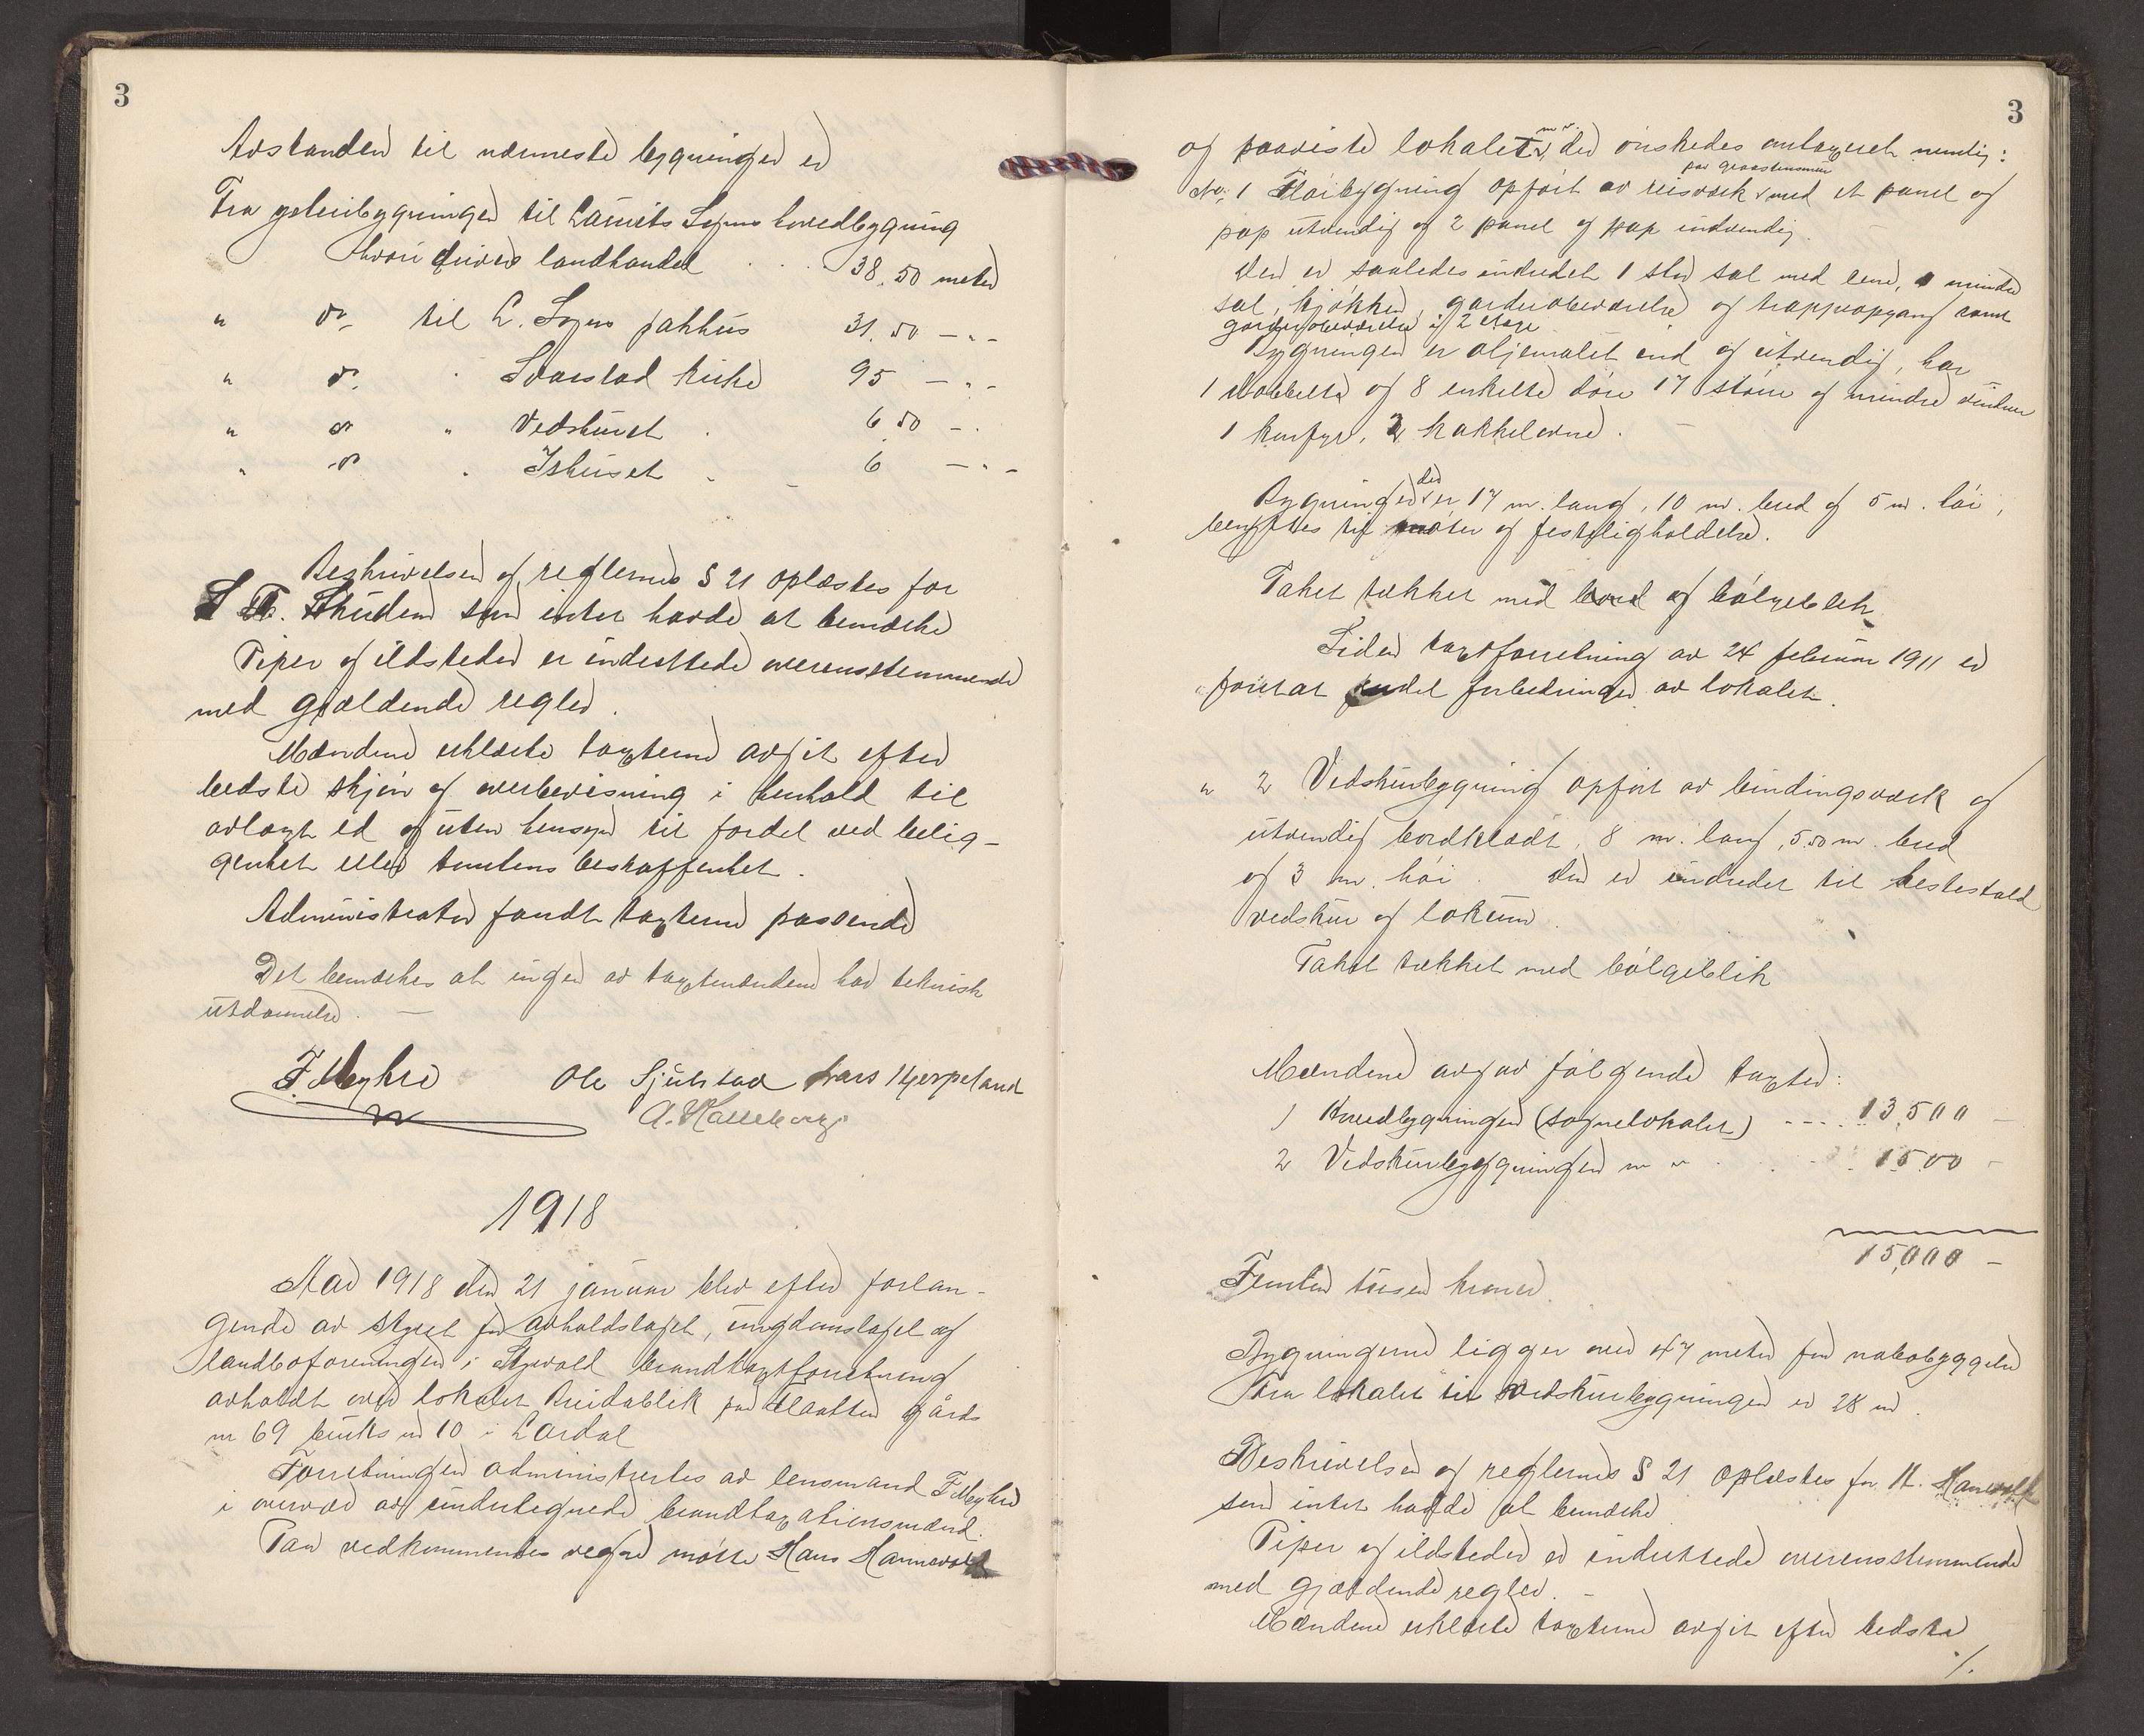 3
Avstanden til nærmeste bygninger er
Fra ysteribygningen til Laurits Sogns hovedbygning
hvori drives landhandel . . . 38.50 meter
" do, til L. Sogns pakhus 31.50 — " -
" do. " Svarstad kirke 95 — " -
" do " Vedskuret . 6.50 - "
" do " Ishuset . - 6 — " -
Beskrivelsen og reglernes § 21 oplæstes for
som intet havde at bemærke
Piper og ildsteder er indrettede overensstemmende
med gjældende regler.
Mændene erklærte taxterne avgit efter
bedste skjøn og overbevisning i henhold til
avlagt ed og uten hensyn til fordel ved belig-
genhet eller tomtens beskaffenhet.
Administrator fandt taxterne passende
Det bemærkes at ingen av taxtmændene har teknisk
utdannelse. —
F. Myhre Ole Sjulstad Lars Kjerpeland
A. Halleberg
1918
Aar 1918 den 21 januar blev efter forlan-
gende av styret for avholdslaget, ungdomslaget og
landboforeningen i Styrvold brandtaxtforretning
avholdt over lokalet Breidablik paa Flaatten gårds
nr 69 bruks nr 10 i Lardal
Forretningen administrertes av lensmand F. Myhre
i overvær av undertegnede brandtaxationsmænd.
Paa vedkommendes vegne møtte Hans Hannevold
3
og paaviste lokalet m. v. der ønskedes antaxeret nemlig:
paa graastensmur
No. 1 Hovbygning opført av reisverk med et panel og
pap utvendig og 2 panel og pap indvendig.
Den er saaledes indredet 1 stor sal med scene, mindre
sal, kjøkken, garderobeværelse og trappeopgang samt
garderobeværelse i 2 etage
Bygningen er oljemalet ind og utvendig, har
1 dobbelte og 8 enkelte døre 17 større og mindre vinduer
1 komfyr, 2 kakkelovne. —
Bygningen der er 17 m. lang, 10 m. bred og 5 m. høi,
benyttes til møter og festligholdelse.
Taket tækket med bord og bølgeblik.
Siden taxtforretning av 24 februar 1911 er
foretat endel forbedringer av lokalet.
" 2 Vedskurbygning opført av bindingsverk og
utvendig bordklædt, 8 m. lang, 5.50 m. bred
og 3 m. høi. Den er indredet til hestestald
vedskur og lokum.
Taket tækket med bølgeblik
Mændene avgav følgende taxter:
1 Hovedbygningen (sognelokalet) - - - - 13,500 —
2 Vedskurbygningen m v . . . 1500 -
15,000 -
Femten tusen kroner.
Bygningerne ligger over 47 meter fra nabobyggelse
Fra lokalet til vedskurbygningen er 28 m.
Beskrivelsen og reglernes § 21 oplæstes for H. Hannevold
som intet hadde at bemærke
Piper og ildsteder er indrettede overensstemmende
med gjældende regler. -
Mændene erklærte taxterne avgit efter bedste
./.